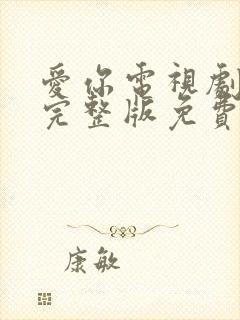 愛你電視劇
完整版免費
康敏